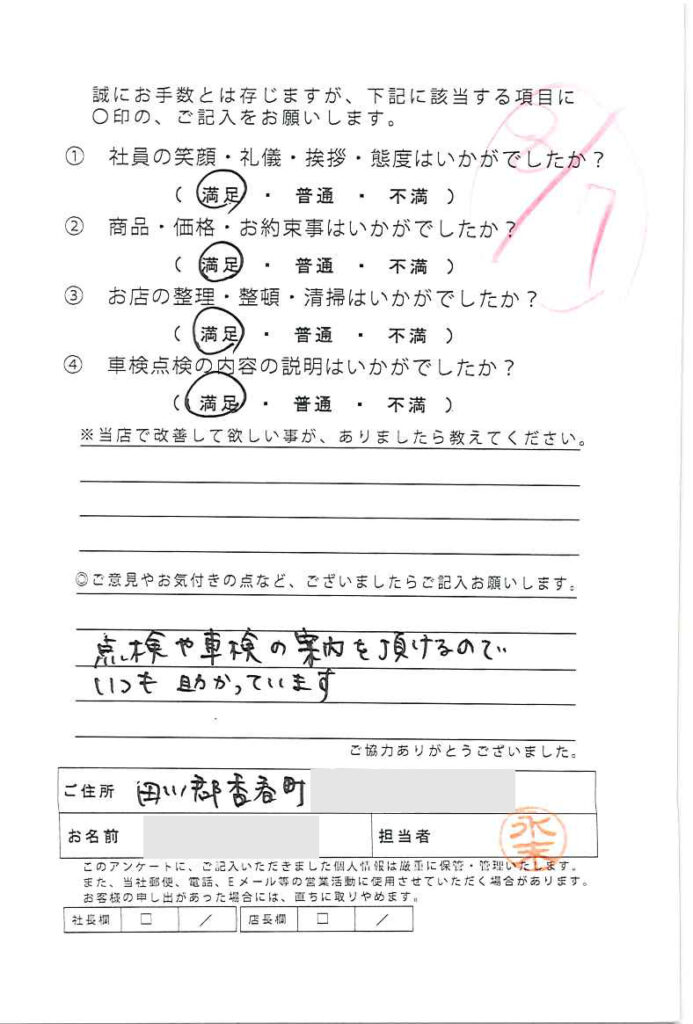 誠にお手数とは存じますが、下記に該当する項目に
〇印の、ご記入をお願いします。
8/7
① 社員の笑顔・礼儀・挨拶・態度はいかがでしたか？
（ 満足 ・ 普通 ・ 不満 ）
② 商品・価格・お約束事はいかがでしたか？
（ 満足 ・ 普通 ・ 不満 ）
③ お店の整理・整頓・清掃はいかがでしたか？
（ 満足 ・ 普通 ・ 不満 ）
④ 車検点検の内容の説明はいかがでしたか？
（ 満足 ・ 普通 ・ 不満 ）
※当店で改善して欲しい事が、ありましたら教えてください。
◎ご意見やお気付きの点など、ございましたらご記入お願いします。
点検や車検の案内を頂けるので
いつも助かっています
ご協力ありがとうございました。
ご住所 田川郡香春町
お名前 担当者 永末
このアンケートに、ご記入いただきました個人情報は厳重に保管・管理いたします。
また、当社郵便、電話、Eメール等の営業活動に使用させていただく場合があります。
お客様の申し出があった場合には、直ちに取りやめます。
社長欄 □ ／ 店長欄 □ ／